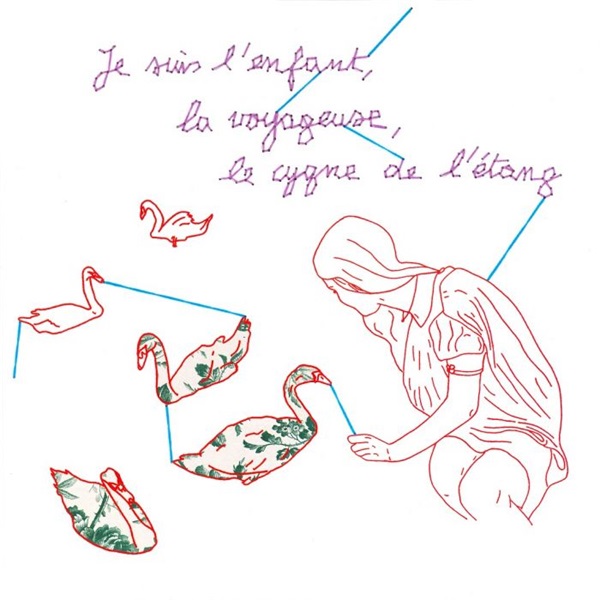 Je suis l'enfant,
la voyageuse,
le cygne de l'étang